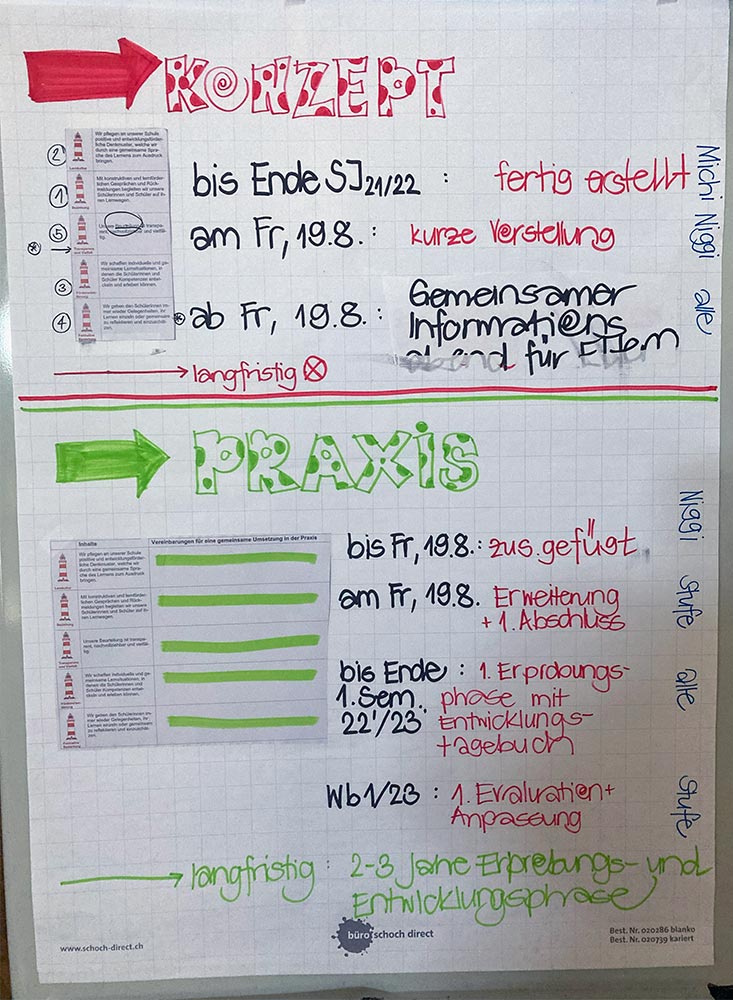 KONZEPT
② Wir pflegen an unserer Schule
positive und entwicklungsförder-
liche Denkmuster, welche wir
durch eine gemeinsame Spra-
che des Lernens zum Ausdruck
bringen.
① Mit konstruktiven und lernförder-
lichen Gesprächen und Rück-
meldungen begleiten wir unsere
Schülerinnen und Schüler auf ih-
ren Lernwegen.
⑤ Unsere Beurteilung ist transpa-
rent, nachvollziehbar und vielfäl-
tig.
③ Wir schaffen individuelle und ge-
meinsame Lernsituationen, in
denen die Schülerinnen und
Schüler Kompetenzen entwi-
ckeln und erleben können.
④ Wir geben den Schüler:innen im-
mer wieder Gelegenheiten, ihr
Lernen einzeln oder gemeinsam
zu reflektieren und einzuschät-
zen.
bis Ende SJ 21/22 : fertig erstellt
Michi Niggi
am Fr, 19.8. : kurze Vorstellung
ab Fr, 19.8. : Gemeinsamer
Informations
abend für Eltern
alle
langfristig ⊗
PRAXIS
Inhalte Vereinbarungen für eine gemeinsame Umsetzung in der Praxis
Wir pflegen an unserer Schule
positive und entwicklungsförder-
liche Denkmuster, welche wir
durch eine gemeinsame Spra-
che des Lernens zum Ausdruck
bringen.
Mit konstruktiven und lernförder-
lichen Gesprächen und Rück-
meldungen begleiten wir unsere
Schülerinnen und Schüler auf ih-
ren Lernwegen.
Unsere Beurteilung ist transpa-
rent, nachvollziehbar und vielfäl-
tig.
Wir schaffen individuelle und ge-
meinsame Lernsituationen, in
denen die Schülerinnen und
Schüler Kompetenzen entwi-
ckeln und erleben können.
Wir geben den Schüler:innen im-
mer wieder Gelegenheiten, ihr
Lernen einzeln oder gemeinsam
zu reflektieren und einzuschät-
zen.
bis Fr, 19.8. : zus. gefügt
Niggi
am Fr, 19.8. Erweiterung
+ 1. Abschluss
Stufe
bis Ende : 1. Erprobungs-
1. Sem. phase mit
22'/23' Entwicklungs-
tagebuch
alle
Wb 1/23 : 1. Evaluation +
Anpassung
Stufe
langfristig : 2-3 Jahre Erprobungs- und
Entwicklungsphase
www.schoch-direct.ch
büro schoch direct
Best. Nr. 020286 blanko
Best. Nr. 020739 kariert